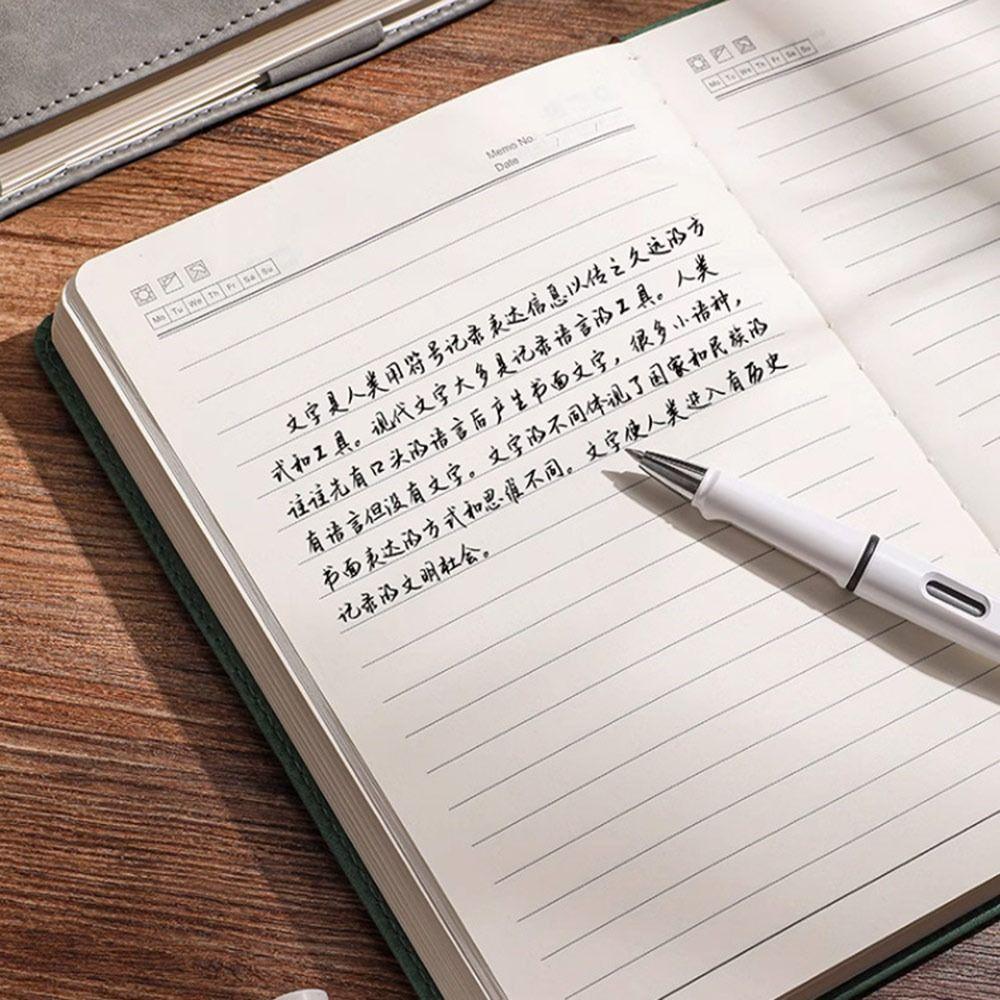 Memo No.
Date / /
Mo Tu We Th Fr Sa Su
文字是人类用符号记录表达信息以传之久远的方
式和工具。现代文字大多是记录语言的工具。人类
往往先有口头的语言后产生书面文字，很多小语种，
有语言但没有文字。文字的不同体现了国家和民族的
书面表达的方式和思维不同。文字使人类进入有历史
记录的文明社会。
Mo Tu We Th Fr Sa Su